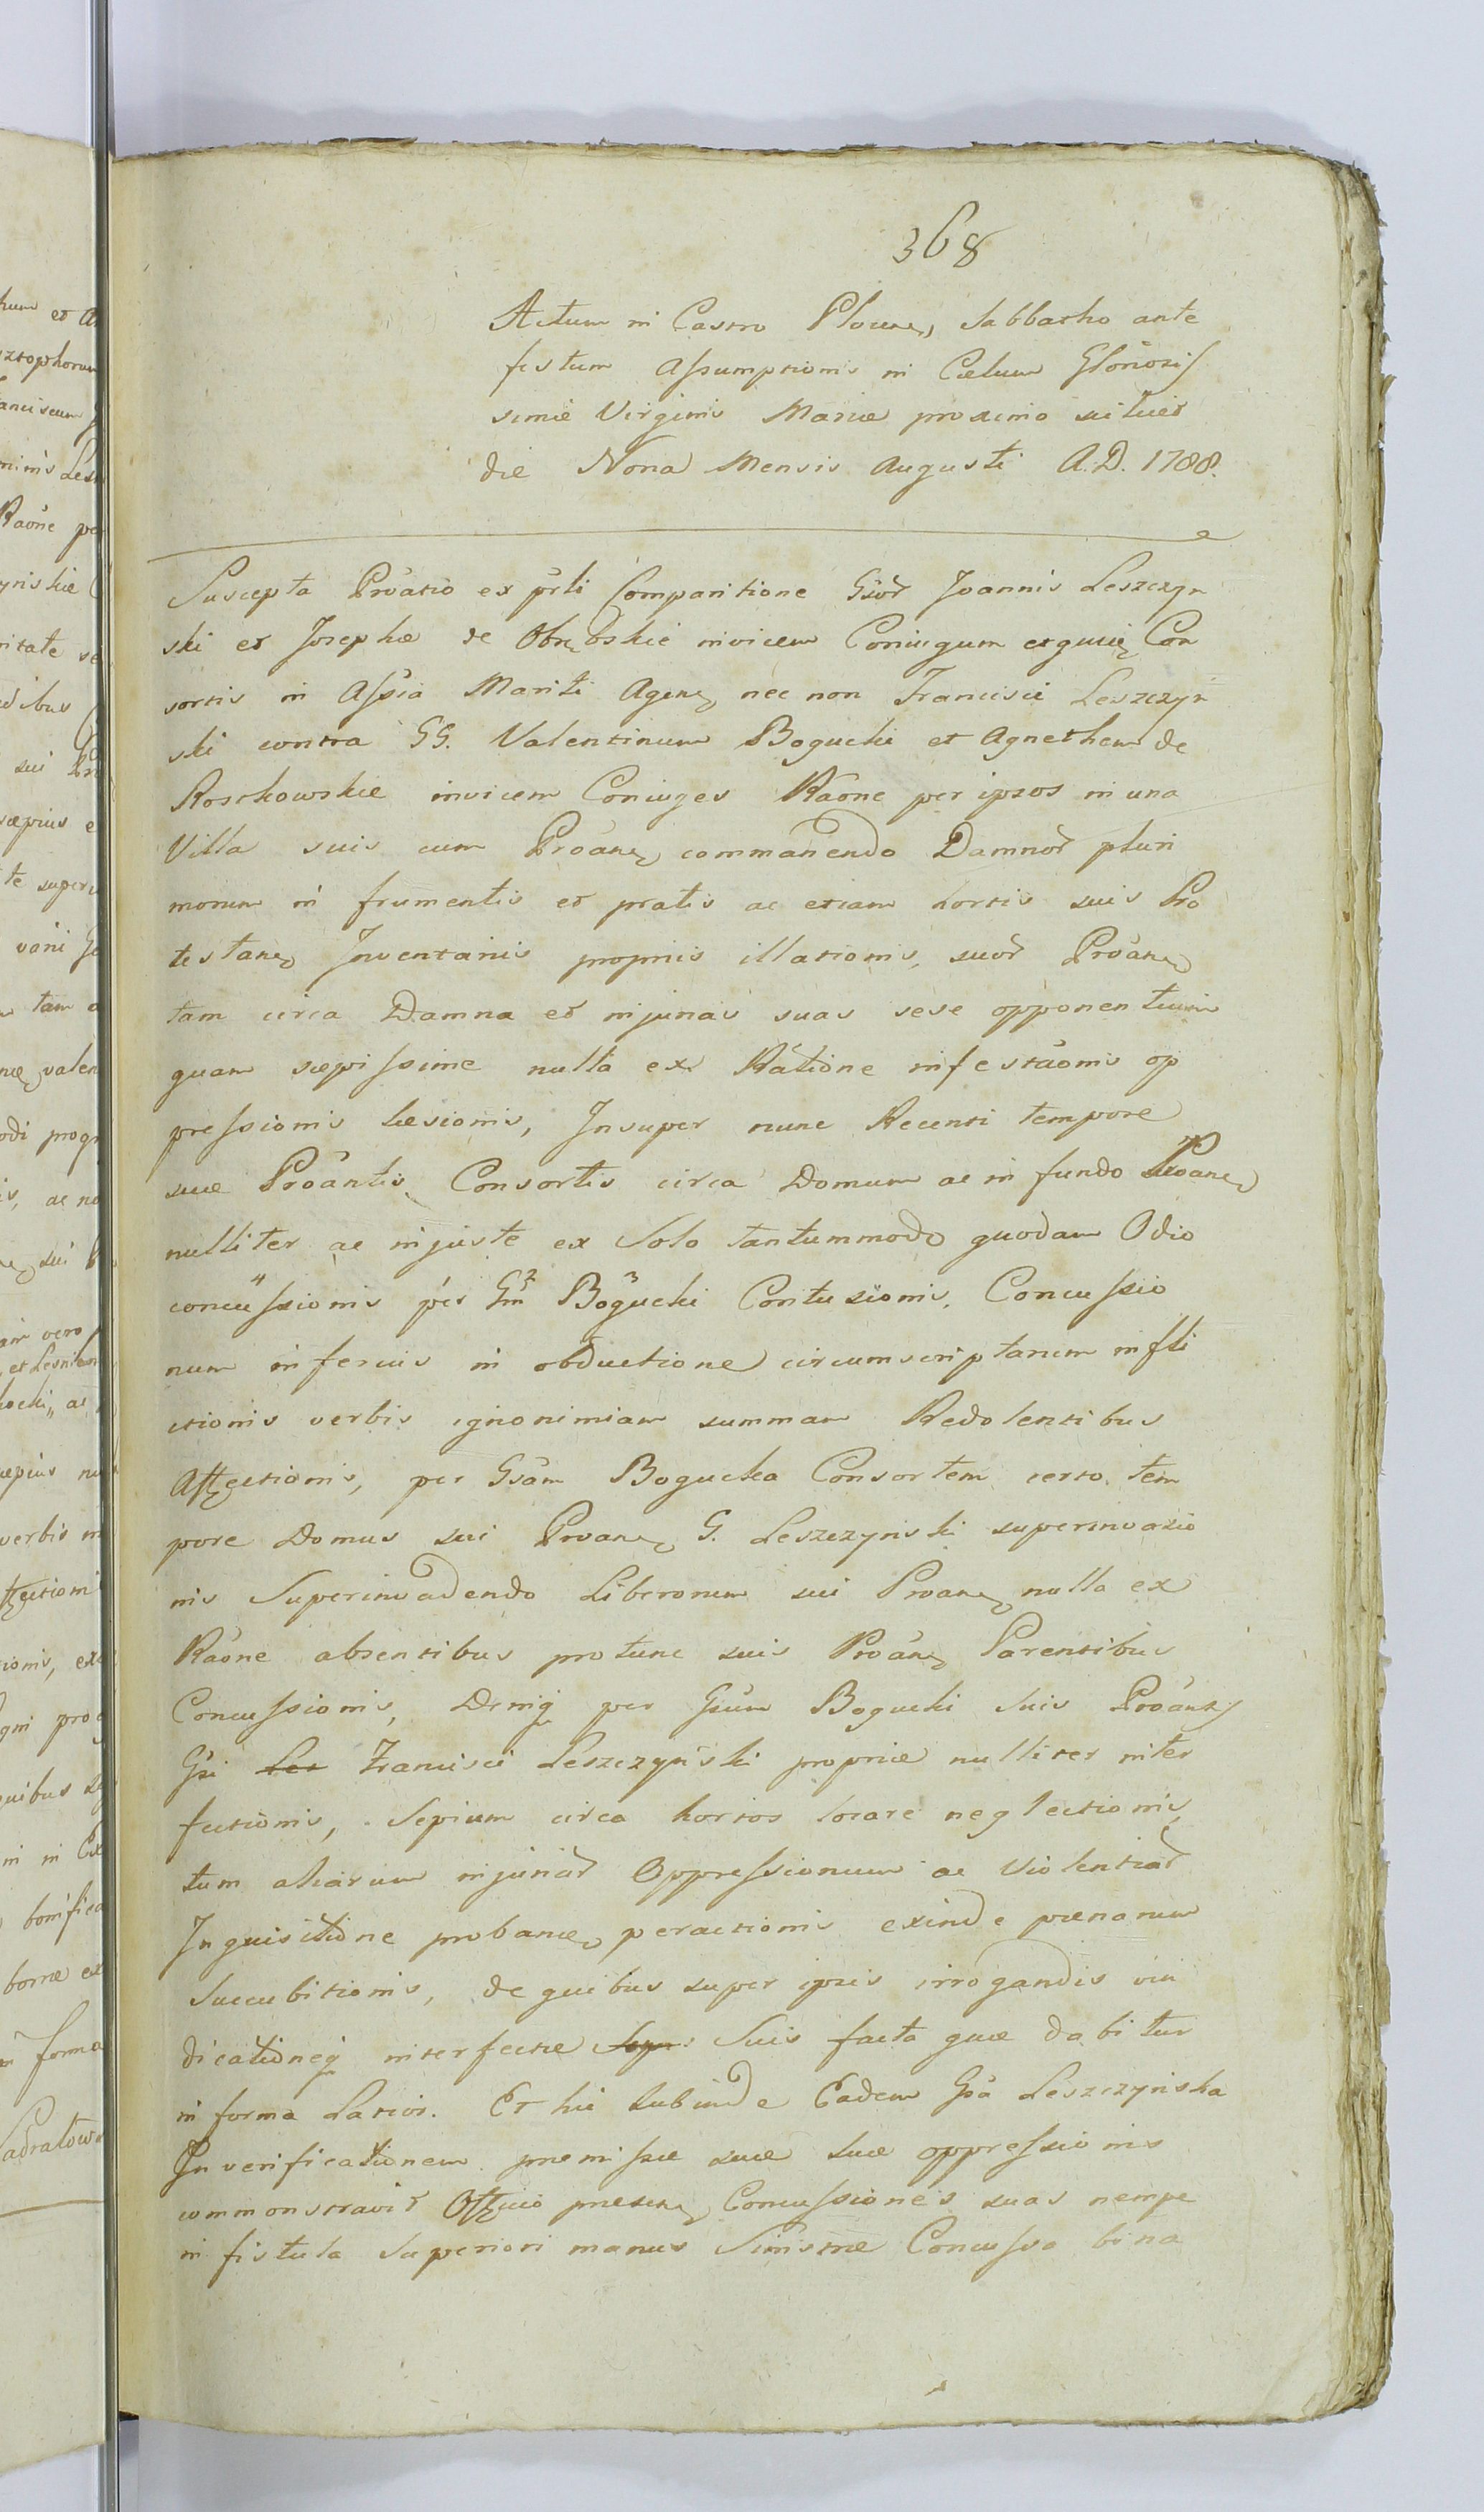 368
Actum in Castro Plocen, Sabbatho ante
festum Assumptionis in Cælum Gloriosis
simæ Virginis Mariæ proximo scilicet
die Nona Mensis Augusti A.D. 1788.
Suscepta Proatio ex prli Comparitione Gsor Joannis Leszczyn
ski et Josephæ de Obrębskie invicem Coniugum ejusque Con
sortis in Assia Mariti Agen, nec non Francisci Leszczyń
ski contra GG. Valentinum Bogucki et Agnethem de
Roschowskie invicem Coniuges Raone per ipsos in una
Villa suis cum Proan, commanendo Damnor pluri
morum in frumentis et pratis ac etiam hortis suis Pro
testan, Inventariis propriis illationis, suor Proan,
tam circa Damna et injurias suas sese opponentium
quam sæpissime nulla ex Ratione infestaonis op
pressionis læsionis, Insuper nunc Recenti tempore
suæ Proantis Consortis circa Domum ac in fundo Proan,
nulliter ac injuste ex Solo tantummodo quodam Odio
concussionis per Gm Bogucki Contusionis, Concussio
num inferius in obductione circumscriptarum infli
ctionis verbis ignonimiam summam Redolentibus
Affectionis, per Gsam Bogucka Consortem certo tem
pore Domus sui Proan, G. Leszczynski superinvasio
nis Superinvadendo Liberorum sui Proan, nulla ex
Raone absentibus protunc suis Proan, Parentibus
Concussionis, Deniq per Gsum Bogucki Suis Proant,
Gsi Les Francisci Leszczyński propriæ nulliter inter
fectionis, Sepium circa hortos locare neglectionis,
tum aliarum injuriar Oppressionum ac Violentiar
Inquisitione proban, peractionis exinde pœnarum
Succubitionis, de quibus super ipsis irrogandis vin
dicationeq interfectæ Suis facta quæ dabitur
in forma Latior. Et hic subinde Eadem Gsa Leszczyńska
In verificationem premissæ suæ suæ oppressionis
commonstravit Officio presen, Concussiones suas nempe
in fistula Superiori manus Sinistræ Concussa bina